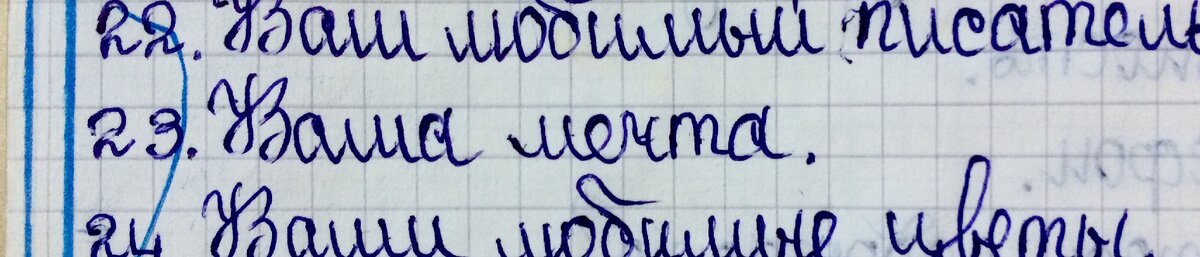 22. Ваш любимый писатель
23. Ваша мечта.
24 Ваши любимые цветы